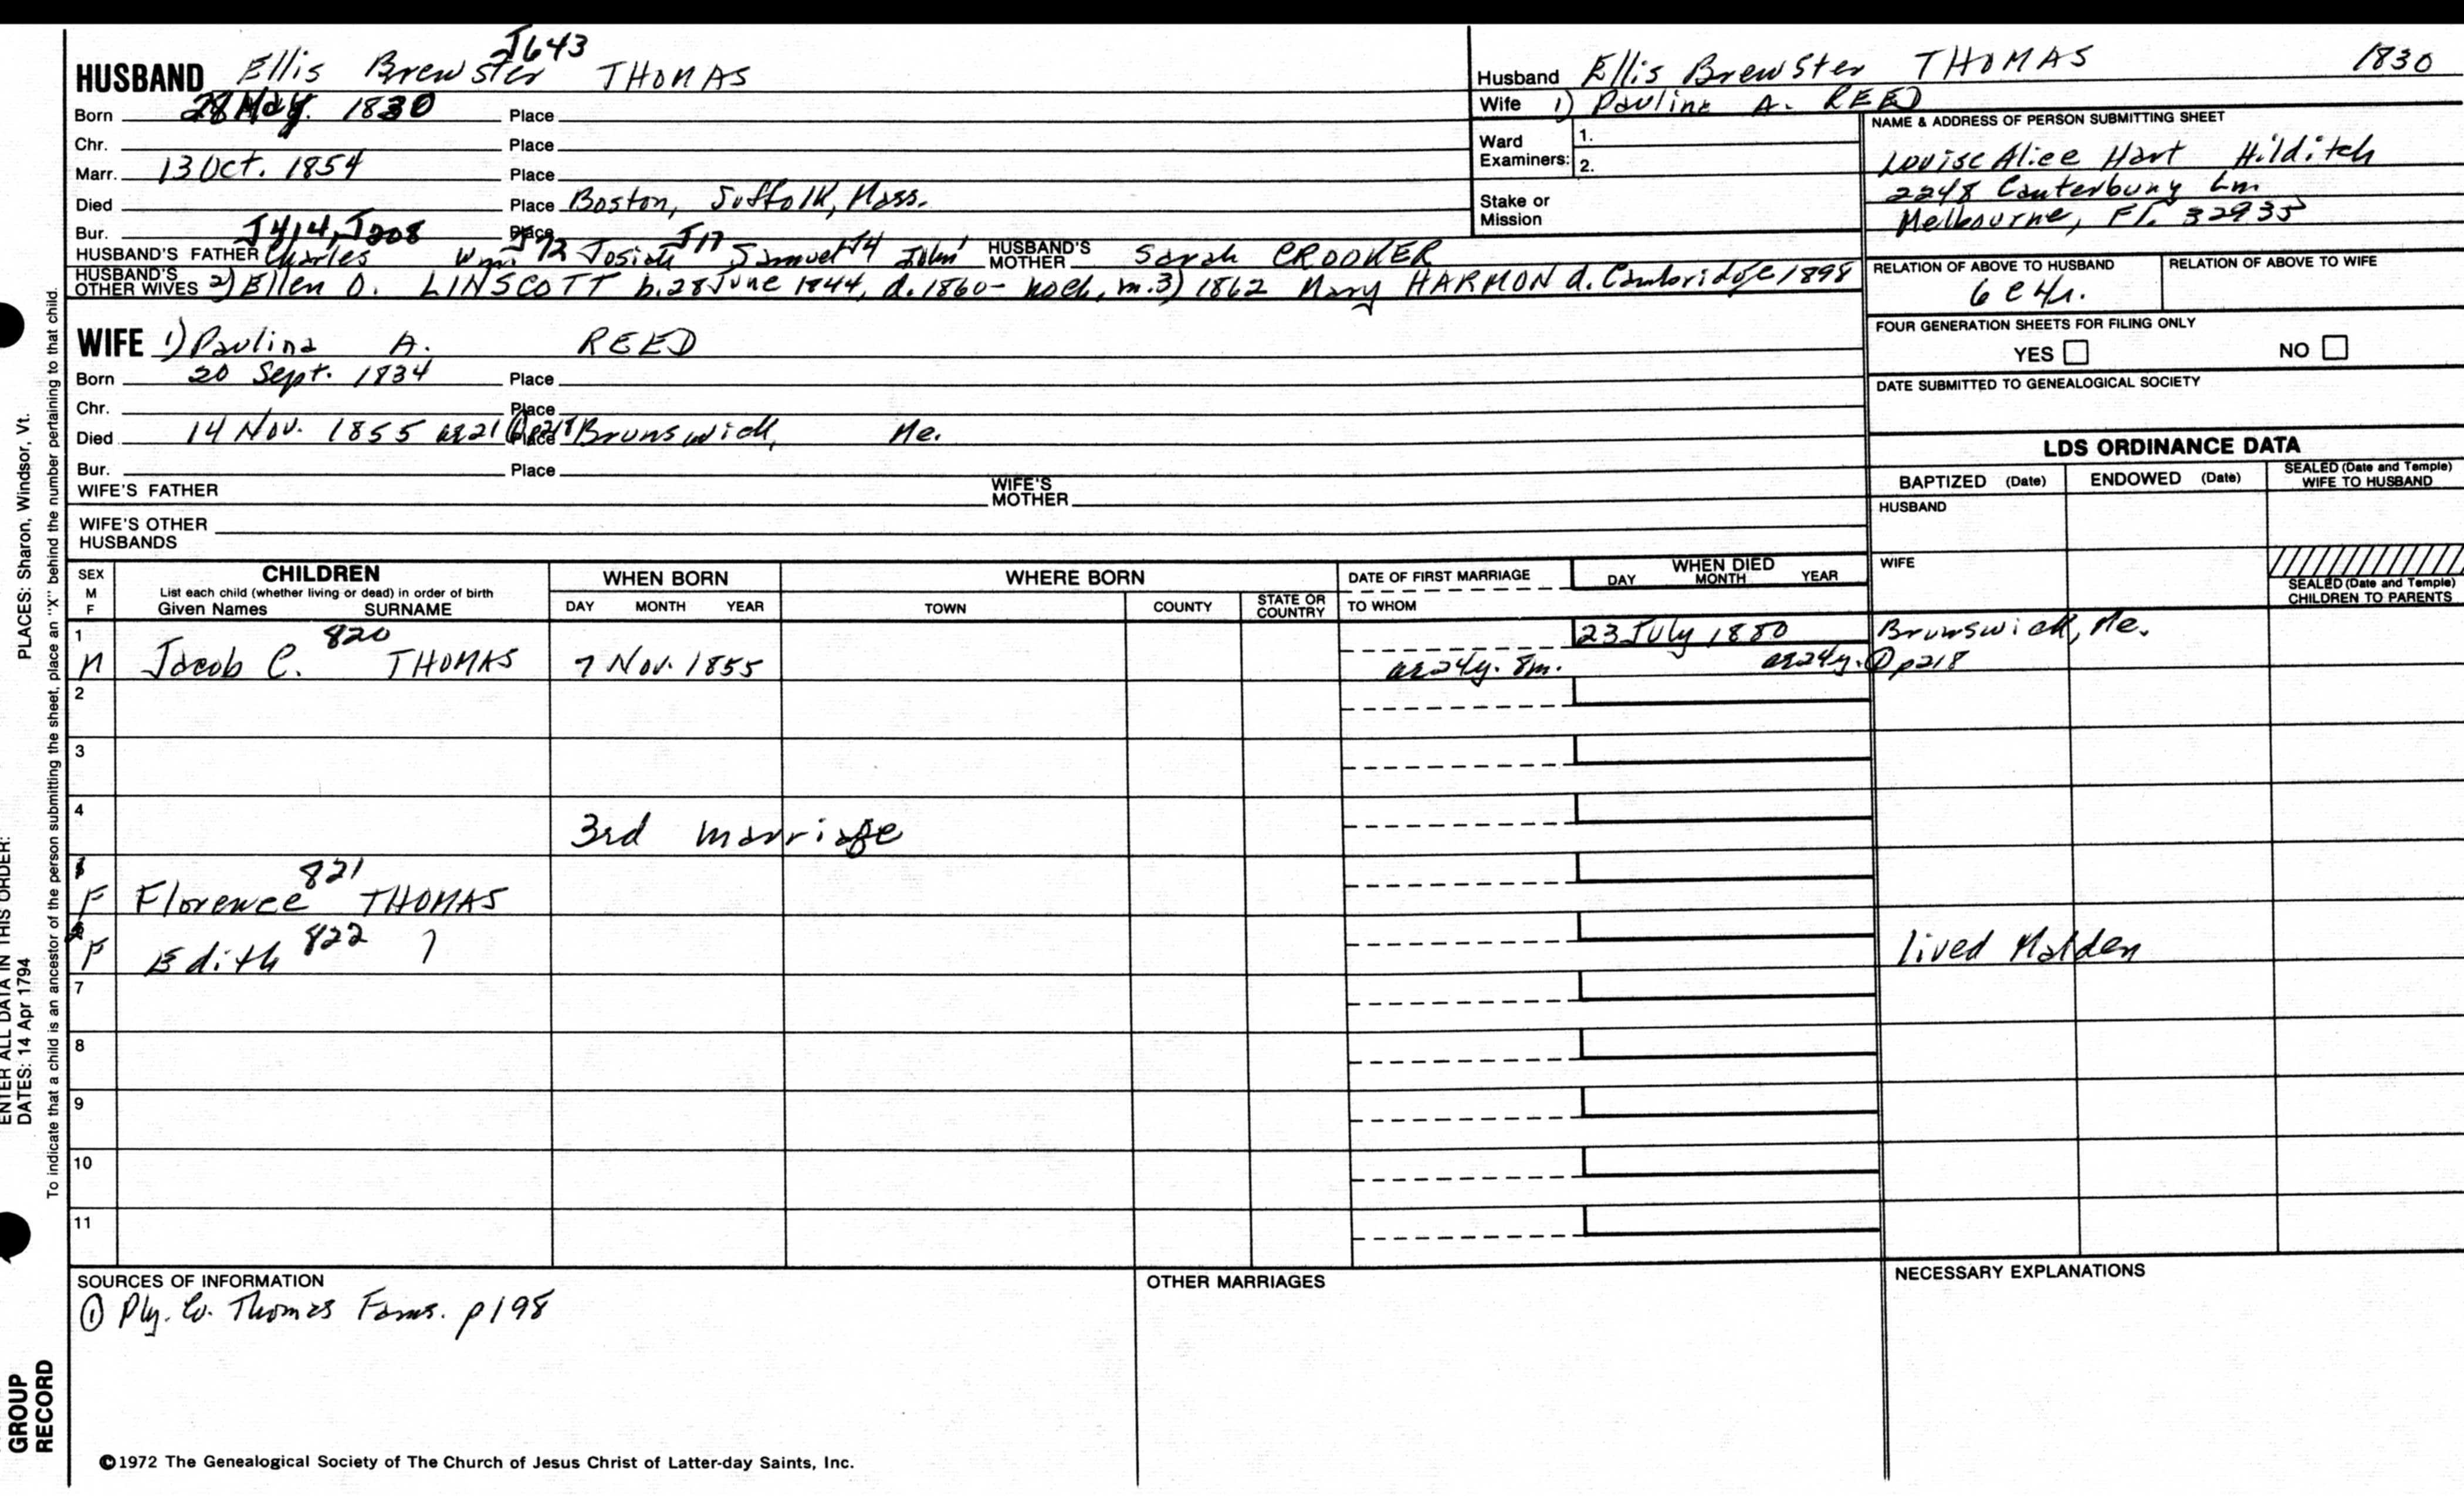 J643
HUSBAND Ellis Brewster THOMAS
Born 28 May. 1830 Place
Chr. Place
Marr. 13 Oct. 1854 Place
Died Place Boston, Suffolk, Mass.
Bur. Place
J414, J208 J72 J17 J4
HUSBAND'S FATHER Charles Wm. Josiah Samuel John' HUSBAND'S MOTHER Sarah CROOKER
HUSBAND'S OTHER WIVES 2) Ellen O. LINSCOTT b. 28 June 1844, d. 1860- noch, m. 3) 1862 Mary HARMON d. Cambridge 1898
WIFE 1) Paulina A. REED
Born 20 Sept. 1834 Place
Chr. Place
Died 14 Nov. 1855 ae 21 ① p218 Place Brunswick, Me.
Bur. Place
WIFE'S FATHER WIFE'S MOTHER
WIFE'S OTHER HUSBANDS
Husband Ellis Brewster THOMAS 1830
Wife 1) Paulina A. REED
Ward Examiners: 1.
2.
Stake or Mission
NAME & ADDRESS OF PERSON SUBMITTING SHEET
Louise Alice Hart Hilditch
2248 Canterbury Ln
Melbourne, Fl. 32935
RELATION OF ABOVE TO HUSBAND RELATION OF ABOVE TO WIFE
6 c 4r.
FOUR GENERATION SHEETS FOR FILING ONLY
YES NO
DATE SUBMITTED TO GENEALOGICAL SOCIETY
LDS ORDINANCE DATA
BAPTIZED (Date) ENDOWED (Date) SEALED (Date and Temple) WIFE TO HUSBAND
HUSBAND
WIFE
SEALED (Date and Temple) CHILDREN TO PARENTS
SEX M F CHILDREN WHEN BORN WHERE BORN DATE OF FIRST MARRIAGE WHEN DIED
List each child (whether living or dead) in order of birth
Given Names SURNAME DAY MONTH YEAR TOWN COUNTY STATE OR COUNTRY TO WHOM DAY MONTH YEAR
1 820 23 July 1880 Brunswick, Me.
M Jacob C. THOMAS 7 Nov. 1855 ae 24y. 8m. ae 24y. ① p218
2
3
4
3rd marriage
821
F Florence THOMAS
2
F Edith 822 ? lived Malden
7
8
9
10
11
SOURCES OF INFORMATION OTHER MARRIAGES NECESSARY EXPLANATIONS
① Ply. Co. Thomas Fams. p198
©1972 The Genealogical Society of The Church of Jesus Christ of Latter-day Saints, Inc.
PLACES: Sharon, Windsor, Vt.
ENTER ALL DATA IN THIS ORDER:
DATES: 14 Apr 1794
To indicate that a child is an ancestor of the person submitting the sheet, place an "X" behind the number pertaining to that child.
GROUP
RECORD